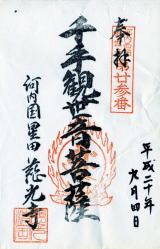 奉拝
第廿参番
千手観世音菩薩
河内国黒田
慈光寺
平成二十年
九月四日